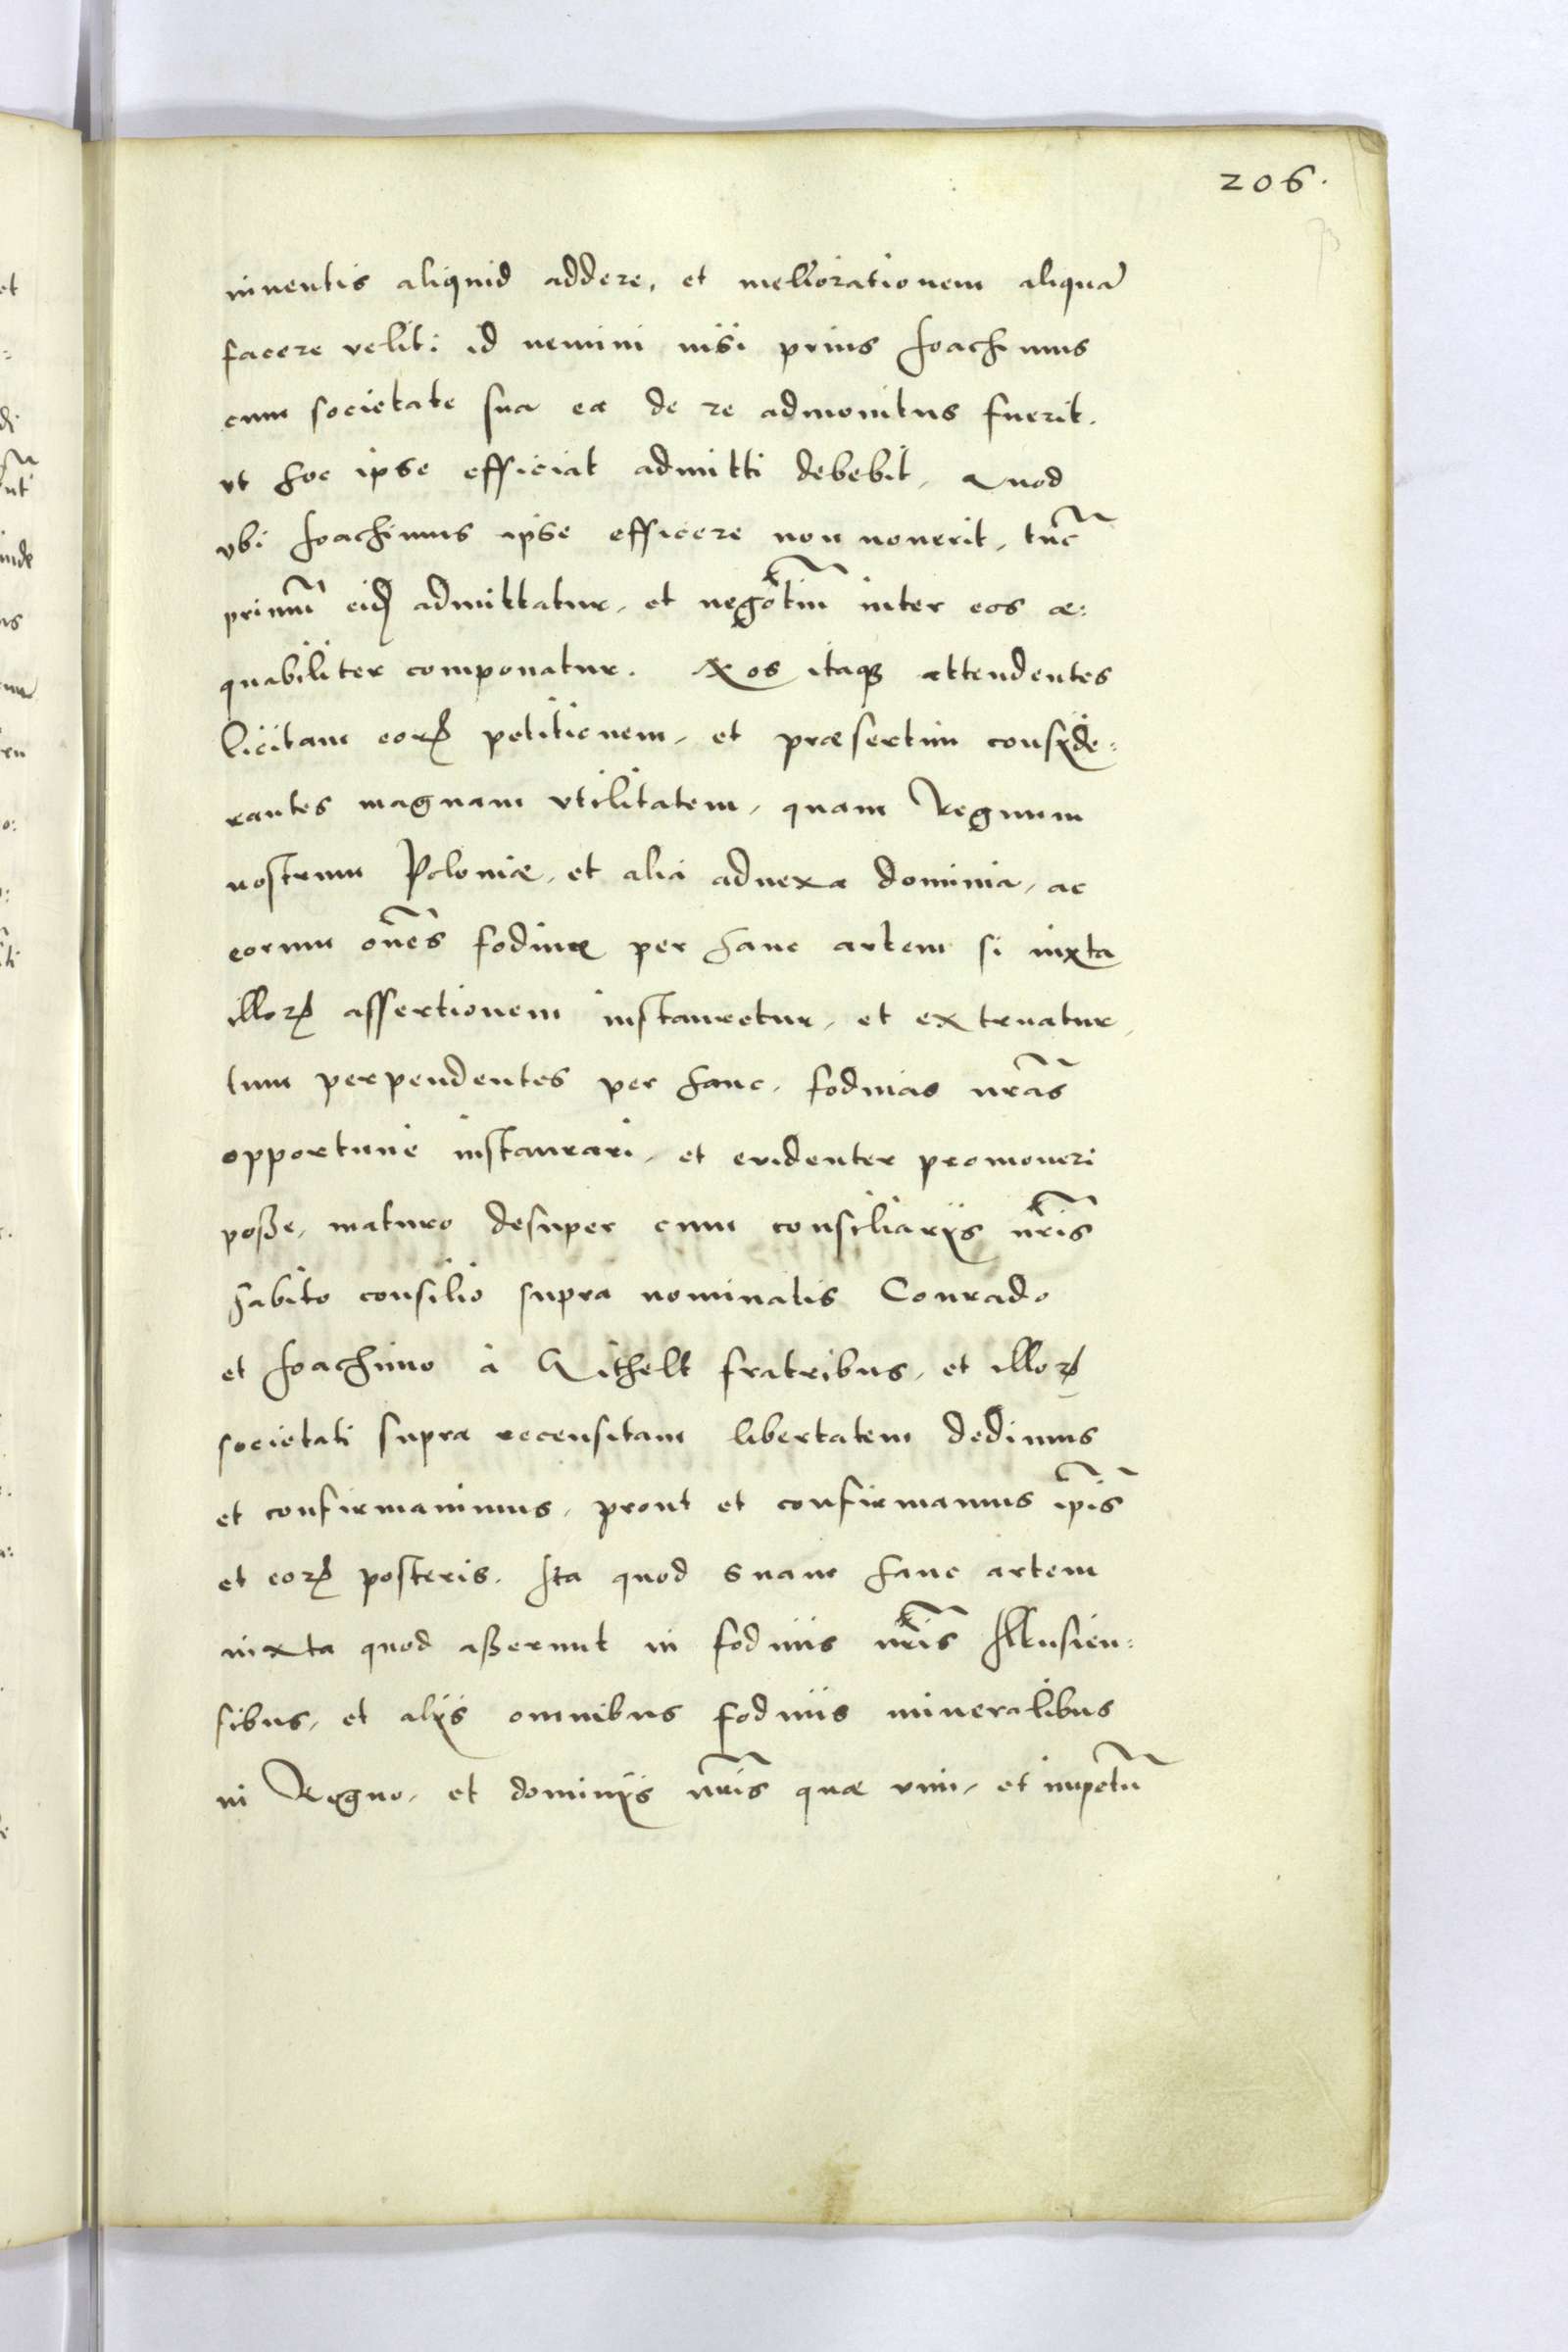 206.
inventis aliquid addere, et meliorationem aliquā
facere velit: id nemini nisi prius Joachimus
cum societate sua ea de re admonitus fuerit.
vt hoc ipse efficiat admitti debebit, Quod
vbi Joachimus ipse efficere non noverit, tūc
primū eidē admittatur, et negōtiū inter eos æ:
quabiliter componatur. Nos itaqꝫ attendentes
licitam eorꝝ petitionem, et præsertim consyde:
rantes magnam vtilitatem, quam Regnum
nostrum Poloniæ, et alia adnexa dominia, ac
eorum oēs fodinæ per hanc artem si iuxta
illorꝝ assertionem instauretur, et extruatur,
tum perpendentes per hanc, fodinas nr̃as
opportune instaurari, et evidenter promoveri
poße, maturo desuper cum consiliarijs nr̃is
habito consilio supra nominatis Conrado
et Joachimo à Githelt fratribus, et illorꝝ
societati supra recensitam libertatem dedimus
et confirmavimus, prout et confirmamus ip̃is
et eorꝝ posteris. Ita quod suam hanc artem
iuxta quod aßerunt in fodinis nr̃is Ilkusien:
sibus, et alijs omnibus fodinis mineralibus
in Regno, et dominijs nr̃is quæ vim, et impetū